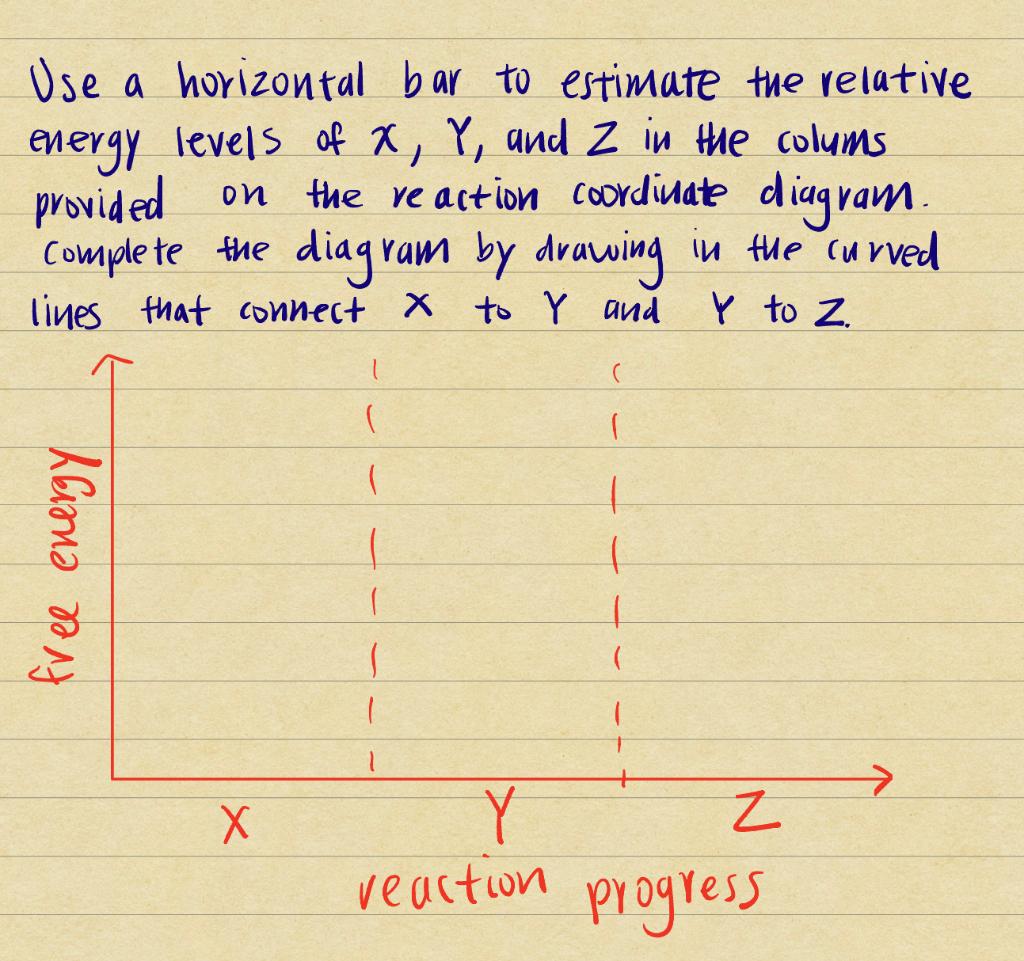 Use a horizontal bar to estimate the relative
energy levels of X, Y, and Z in the colums
provided on the reaction coordinate diagram.
Complete the diagram by drawing in the curved
lines that connect X to Y and Y to Z.
free energy
X Y Z
reaction progress